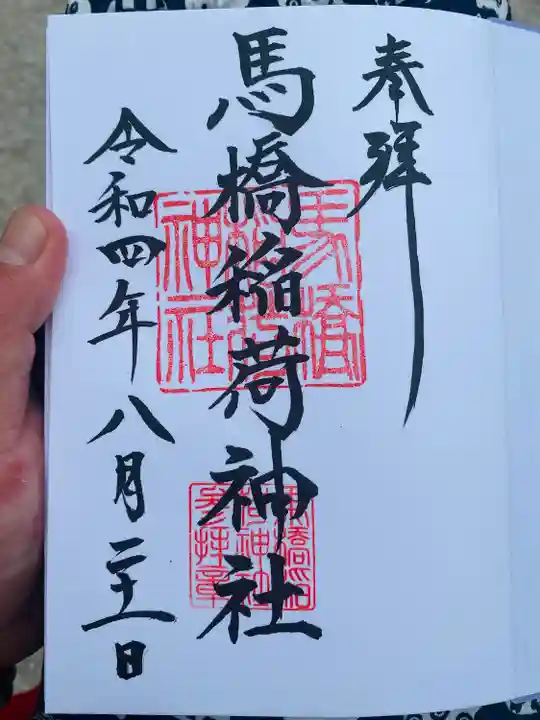 奉拜
馬橋稲荷神社
馬橋稲荷神社
馬橋稲荷神社参拝章
令和四年八月二十一日